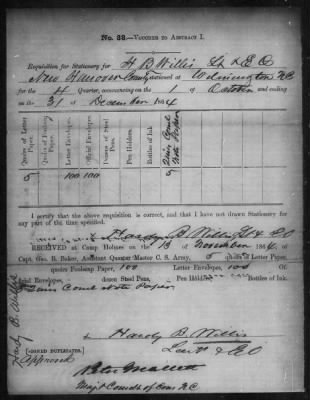 No. 38.—Voucher to Abstract I.
Requisition for Stationery for H B Willis Lt & E O
New Hanover County stationed at Wilmington N C
for the 4 Quarter, commencing on the 1 of October and ending
on the 31 of December 1864
Quires of Letter Paper.
Quires of Foolscap Paper.
Letter Envelopes.
Official Envelopes.
Dozens of Steel Pens.
Pen Holders.
Bottles of Ink.
Note Paper
5 100 100
I certify that the above requisition is correct, and that I have not drawn Stationery for
any part of the time specified.
Hardy B Willis Lt & E O
RECEIVED at Camp Holmes on the 13 of November 1864, of
Capt. Geo. B. Baker, Assistant Quarter Master C. S. Army, 5 quires of Letter Paper,
quires Foolscap Paper, 100 Letter Envelopes, 100 Of-
ficial Envelopes, dozen Steel Pens, Pen Holders, Bottles of Ink.
Note Paper
Hardy B. Willis
Lieut & E O
[SIGNED DUPLICATES.]
Approved
Peter Mallett
Maj & Comdt of Con N.C.
Hardy B. Willis